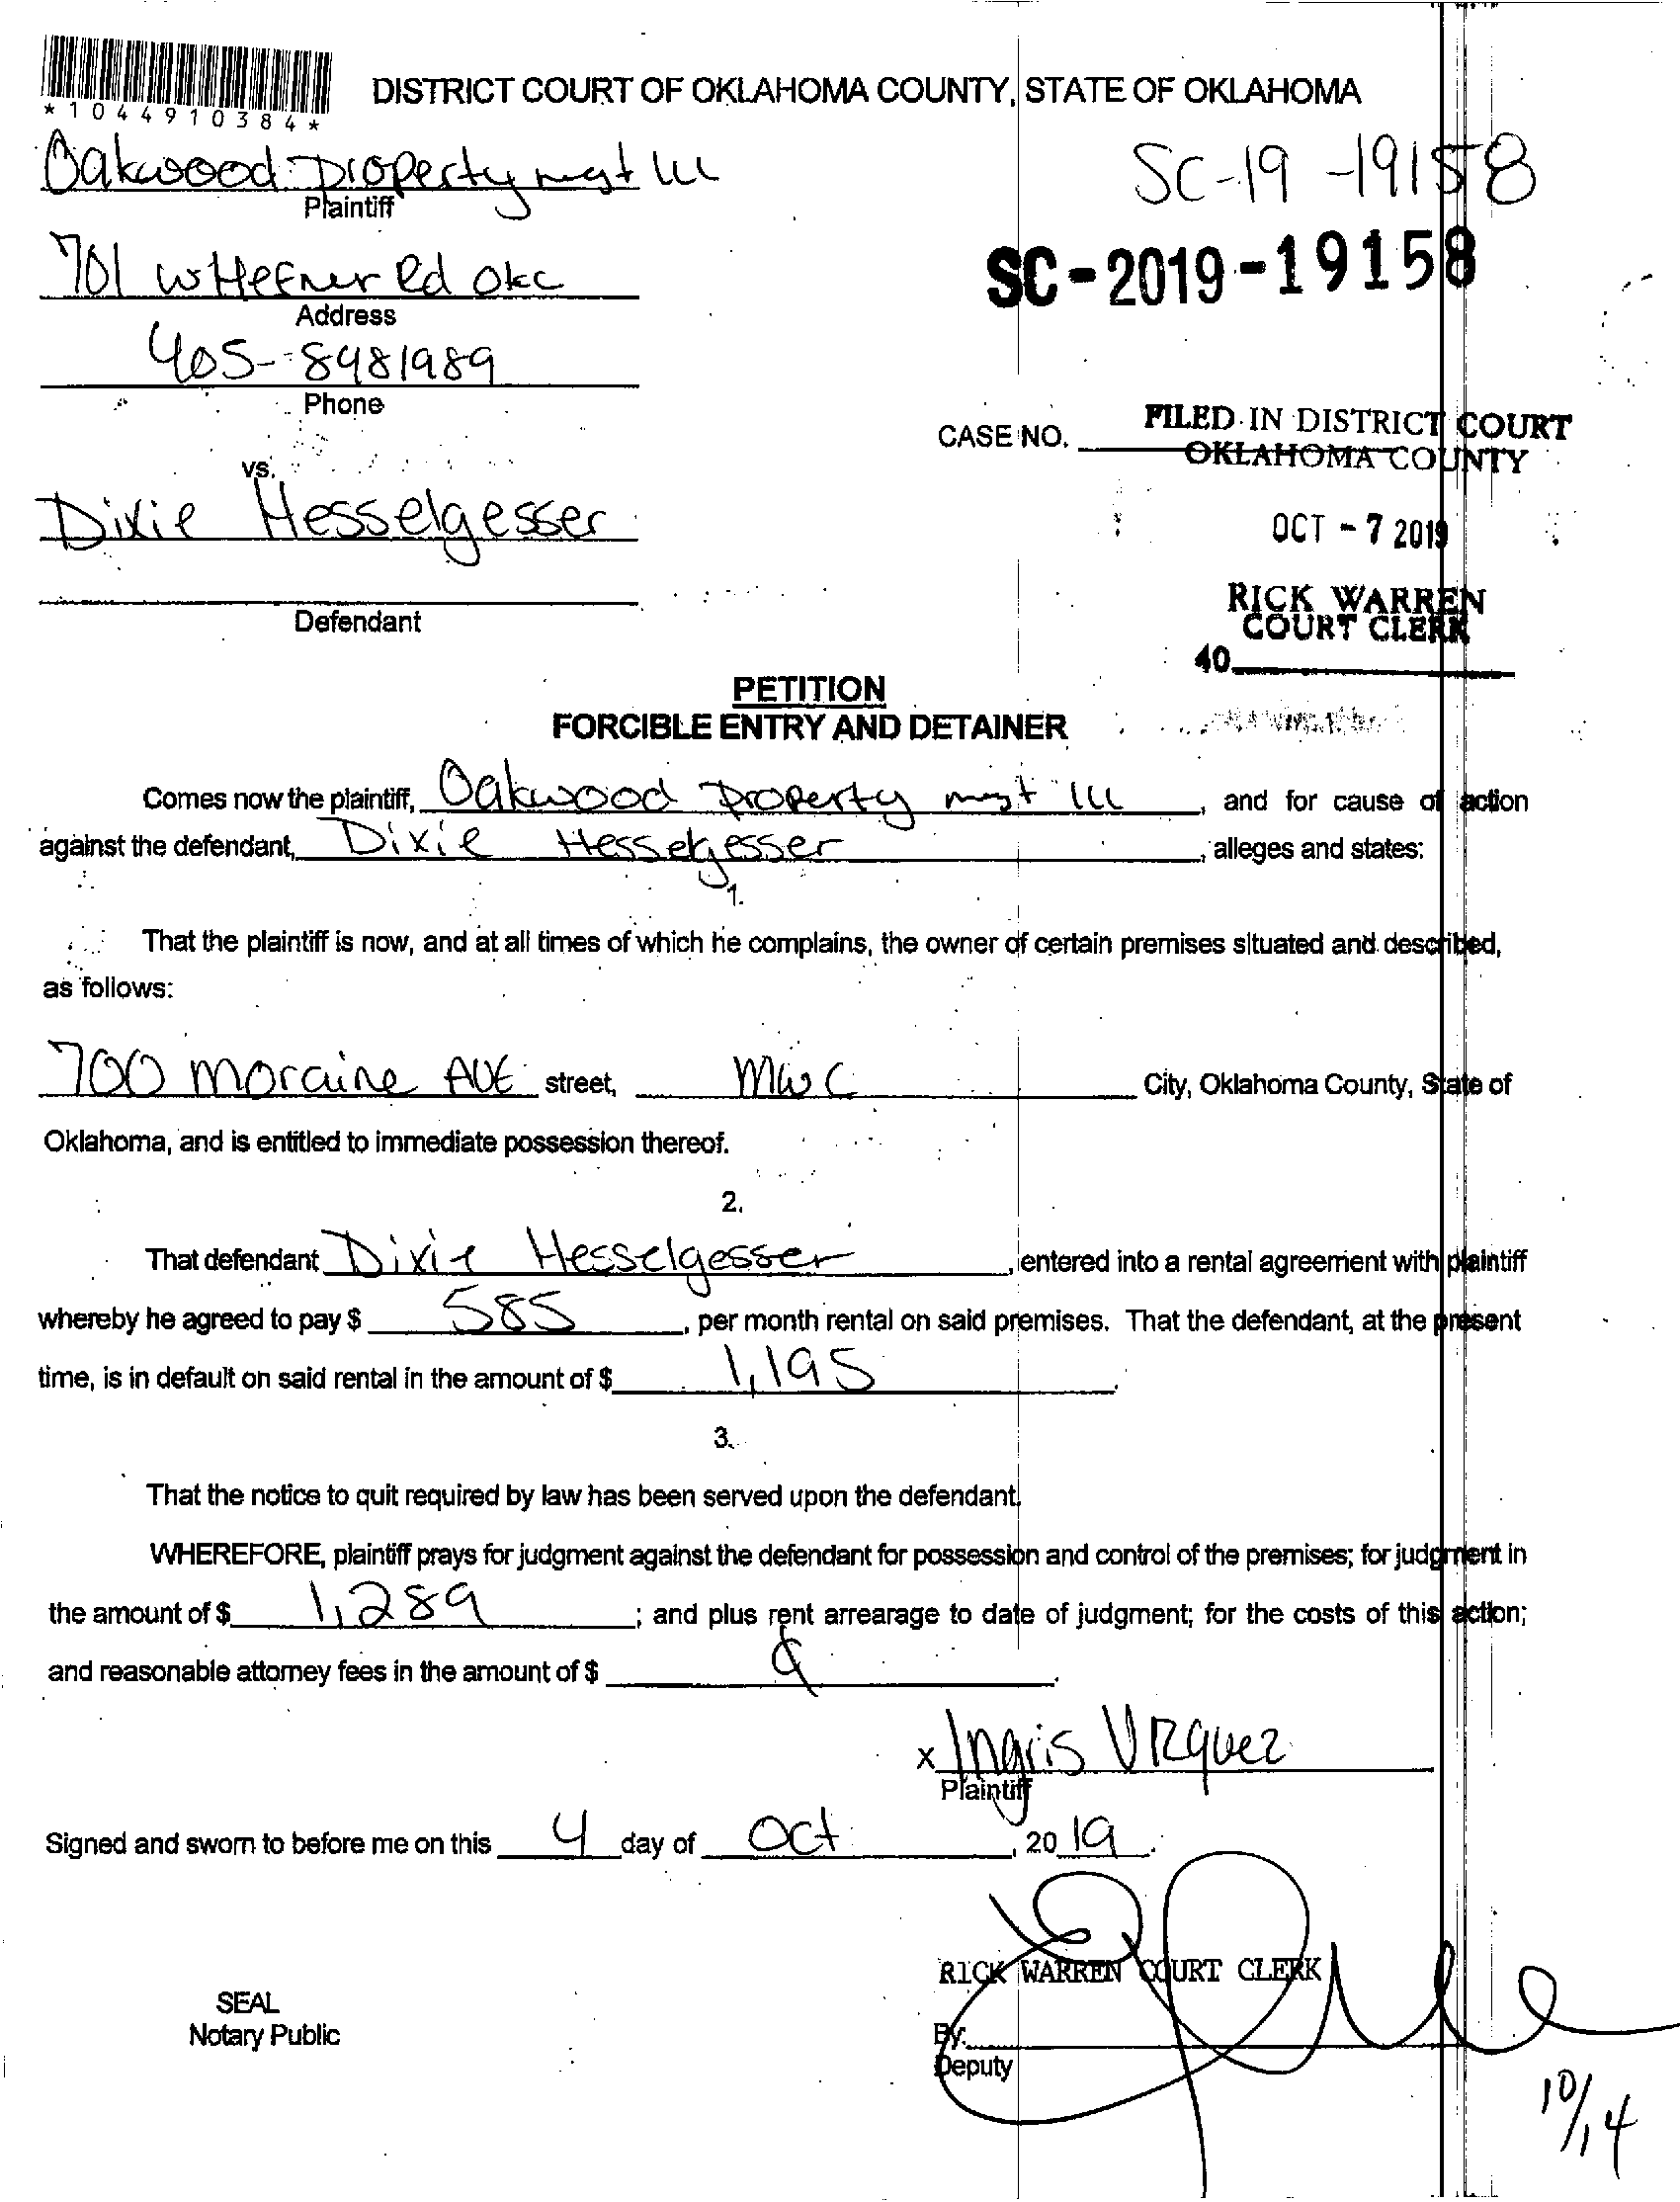 *1044910384*
DISTRICT COURT OF OKLAHOMA COUNTY, STATE OF OKLAHOMA
Oakwood property mgt LLC
SC-19-19158
Plaintiff
701 w Hefner Rd okc
SC-2019-19158
Address
405-8481989
Phone
FILED IN DISTRICT COURT
CASE NO.
OKLAHOMA COUNTY
vs.
Dixie Hesselgesser
OCT -7 2019
RICK WARREN
COURT CLERK
Defendant
40
PETITION
FORCIBLE ENTRY AND DETAINER
Comes now the plaintiff, Oakwood property mgt LLC, and for cause of action
against the defendant, Dixie Hesselgesser, alleges and states:
1.
That the plaintiff is now, and at all times of which he complains, the owner of certain premises situated and described,
as follows:
700 moraine AVE street, MWC City, Oklahoma County, State of
Oklahoma, and is entitled to immediate possession thereof.
2.
That defendant Dixie Hesselgesser, entered into a rental agreement with plaintiff
whereby he agreed to pay $ 585, per month rental on said premises. That the defendant, at the present
time, is in default on said rental in the amount of $ 1,195.
3.
That the notice to quit required by law has been served upon the defendant.
WHEREFORE, plaintiff prays for judgment against the defendant for possession and control of the premises; for judgment in
the amount of $ 1,289; and plus rent arrearage to date of judgment; for the costs of this action;
and reasonable attorney fees in the amount of $ .
x Ingris
Plaintiff
Signed and sworn to before me on this 4 day of Oct, 2019.
RICK WARREN COURT CLERK
SEAL
Notary Public
By:
Deputy
10/14